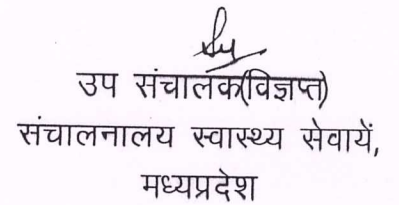 उप संचालक(विज्ञप्त)
संचालनालय स्वास्थ्य सेवायें,
मध्यप्रदेश